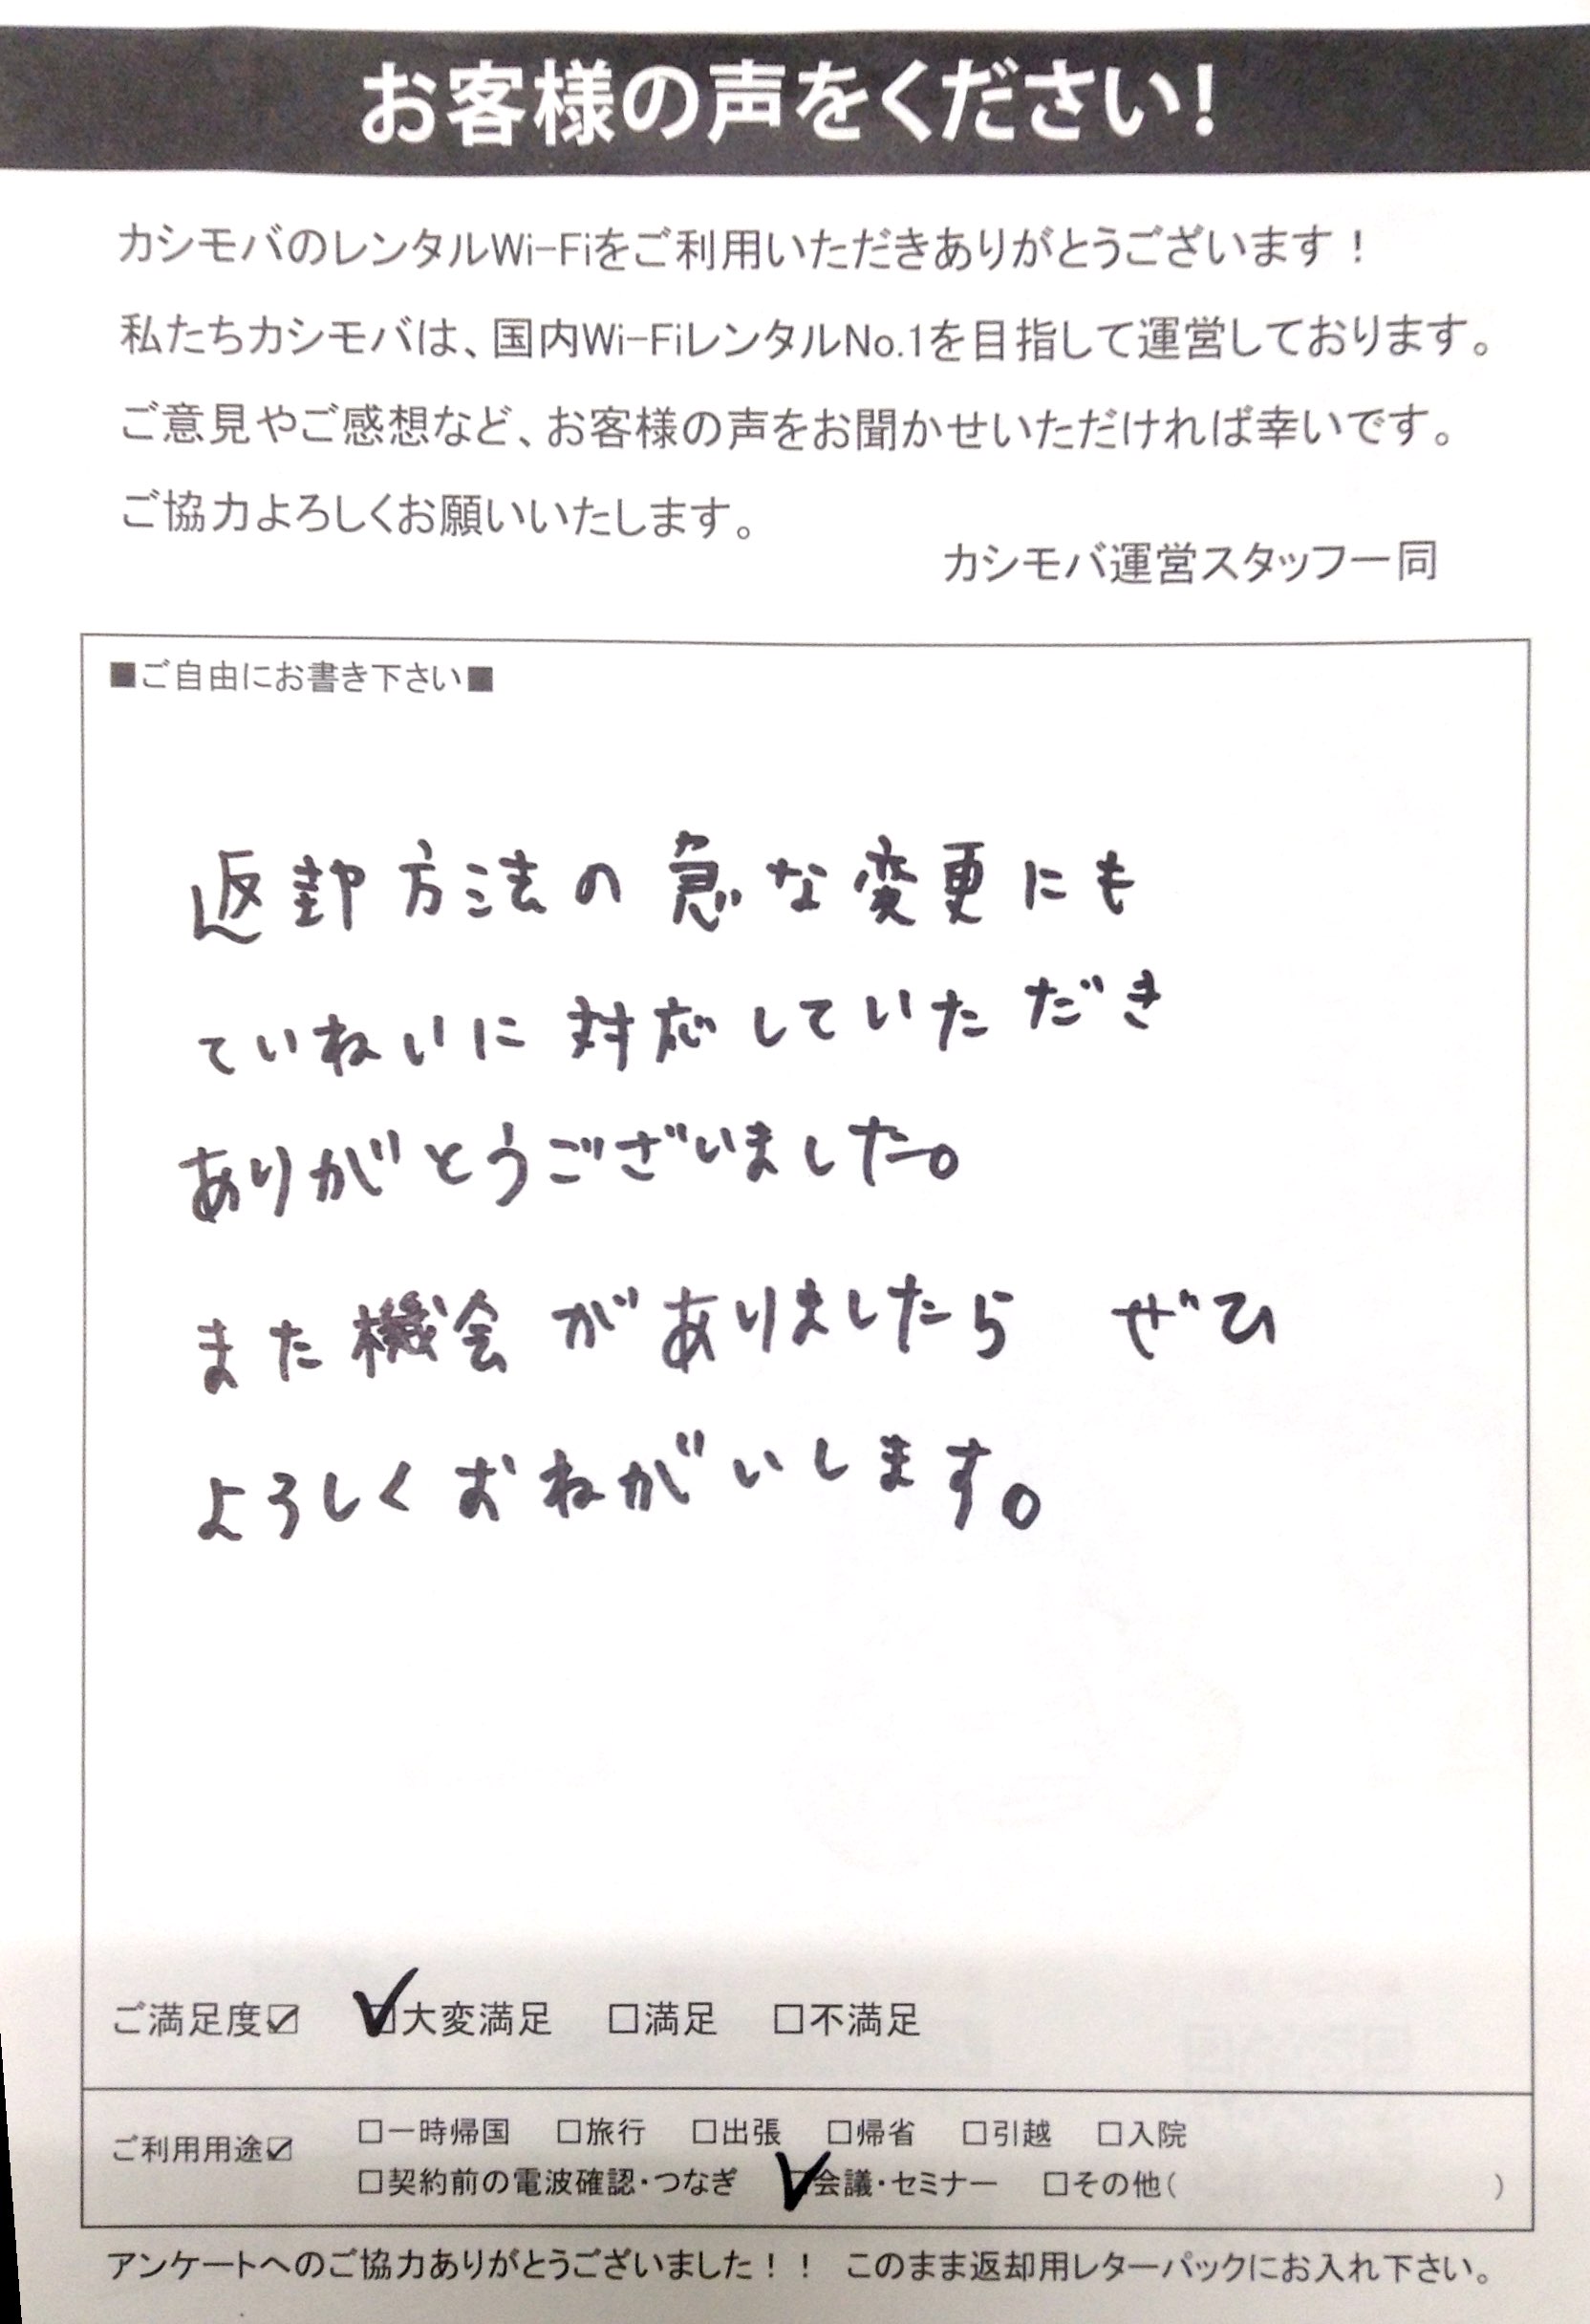 お客様の声をください!
カシモバのレンタルWi-Fiをご利用いただきありがとうございます！
私たちカシモバは、国内Wi-FiレンタルNo.1を目指して運営しております。
ご意見やご感想など、お客様の声をお聞かせいただければ幸いです。
ご協力よろしくお願いいたします。
カシモバ運営スタッフ一同
■ご自由にお書き下さい■
返却方法の急な変更にも
ていねいに対応していただき
ありがとうございました。
また機会がありましたら ぜひ
よろしくおねがいします。
ご満足度☑ ☑大変満足 □満足 □不満足
ご利用用途☑ □一時帰国 □旅行 □出張 □帰省 □引越 □入院
□契約前の電波確認・つなぎ ☑会議・セミナー □その他( )
アンケートへのご協力ありがとうございました！！ このまま返却用レターパックにお入れ下さい。